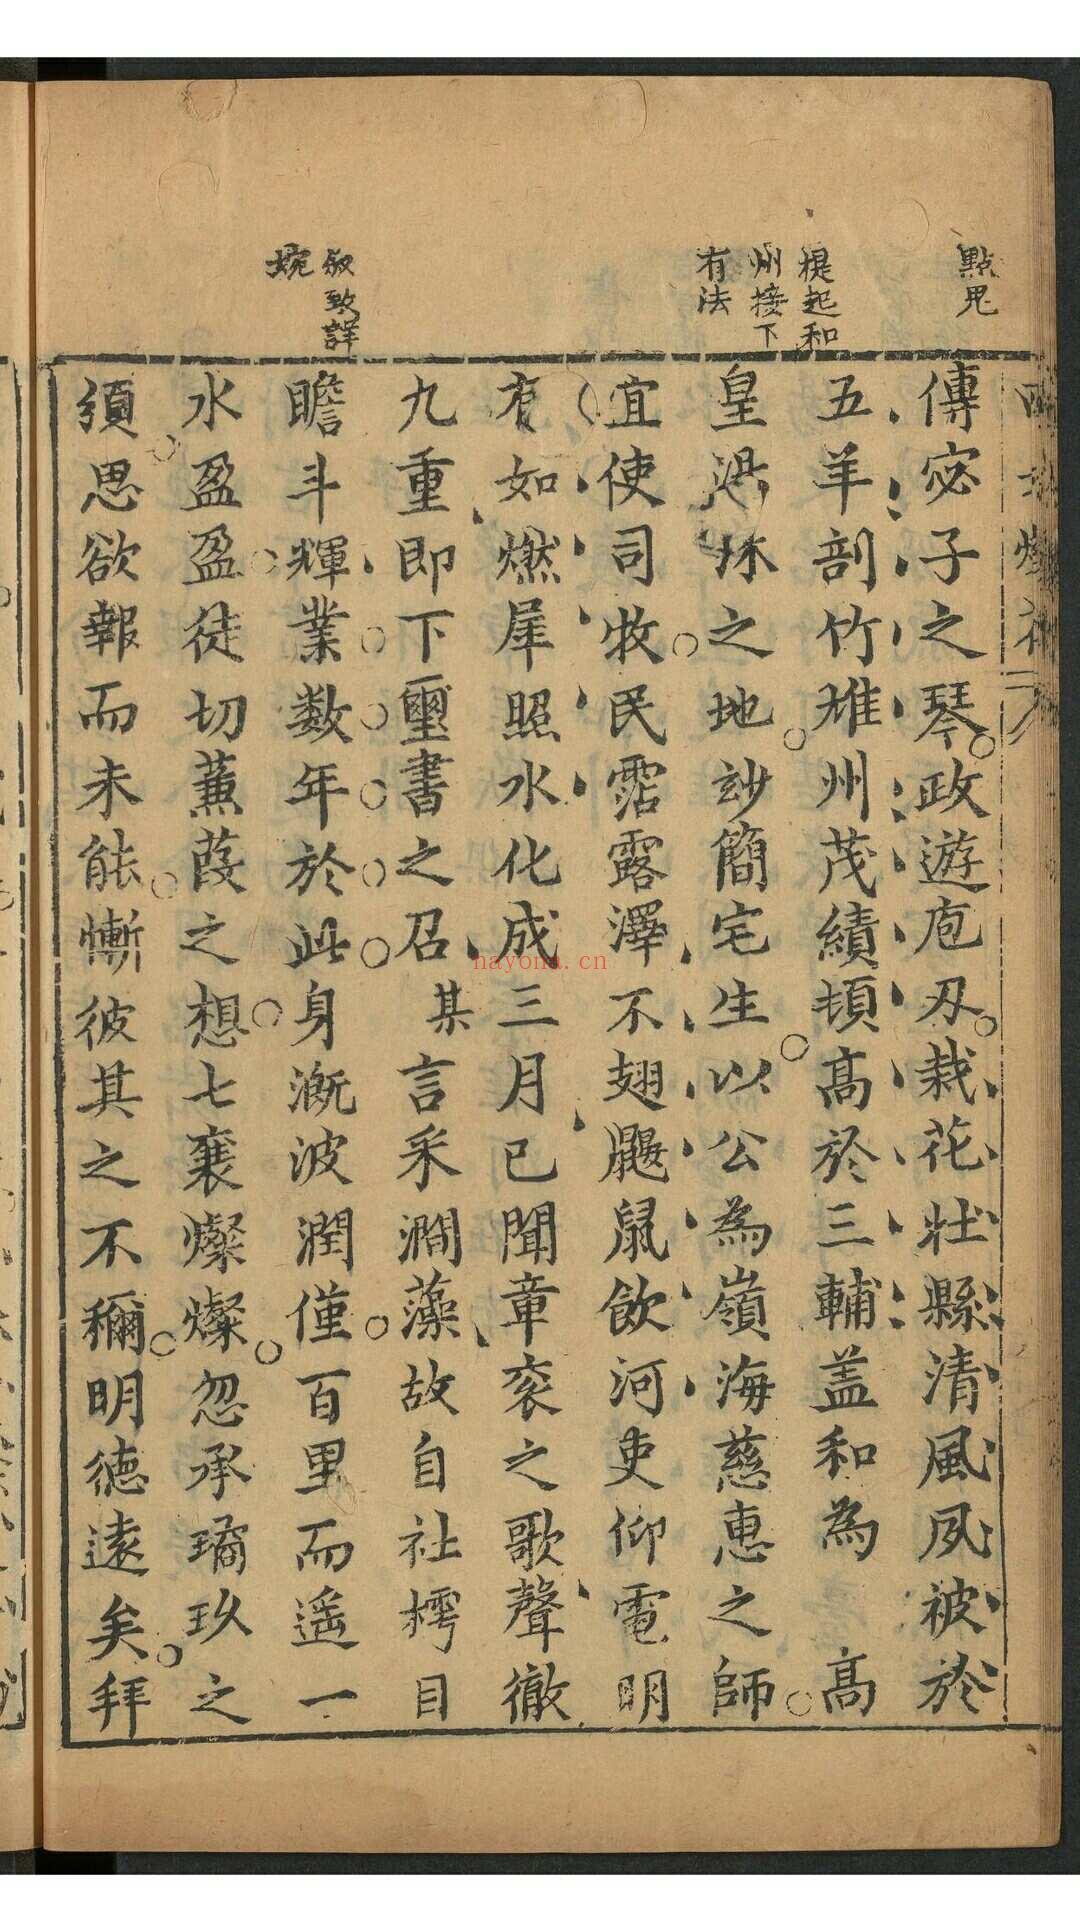 點鬼
提起和
州接下
有法
叙致詳
婉
傳宓子之琴政遊庖刃栽花壯縣清風夙被於
五羊剖竹雄州茂績頓高於三輔盖和為　高
皇湯沐之地玅簡宅生以公為嶺海慈惠之師
宜使司牧民霑露澤不翅鼴鼠飲河吏仰電明
有如燃犀照水化成三月已聞章衮之歌聲徹
九重即下璽書之召某言釆澗藻故自社樗目
瞻斗輝業数年於此身漑波潤僅百里而遥一
水盈盈徒切蒹葭之想七襄燦燦忽承璚玖之
須思欲報而未能慚彼其之不稱明德遠矣拜
nayona.cn